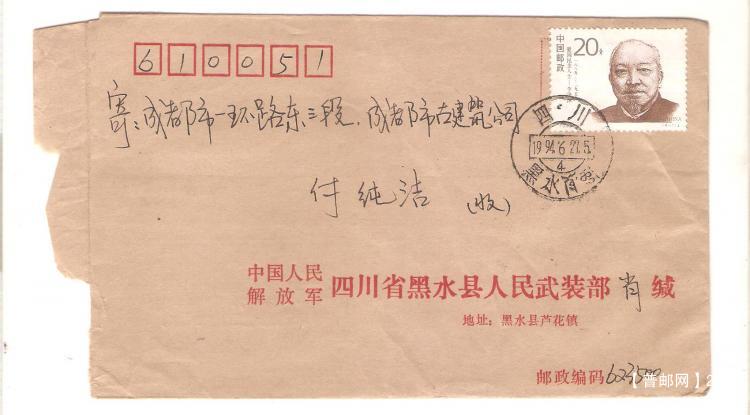 610051
20分
中国邮政
寄:成都市一环路东三段,成都市古建筑公司
四·川
1994.6.27.5
4
黑水
付纯洁 (收)
中国人民
解放军 四川省黑水县人民武装部 肖 缄
地址:黑水县芦花镇
邮政编码 623500
【普邮网】2